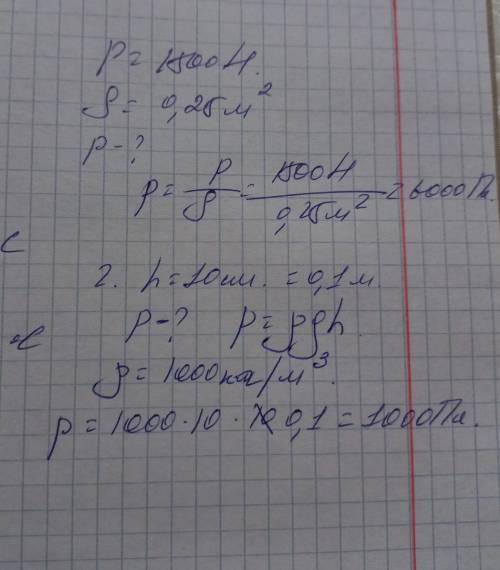 P = 1500 Н.
S = 0,25 м²
p - ?
p = P/S = 1500 Н/0,25 м² = 6000 Па.
2. h = 10 см. = 0,1 м.
P - ? p = ρgh.
ρ = 1000 кг/м³.
p = 1000 · 10 · 0,1 = 1000 Па.